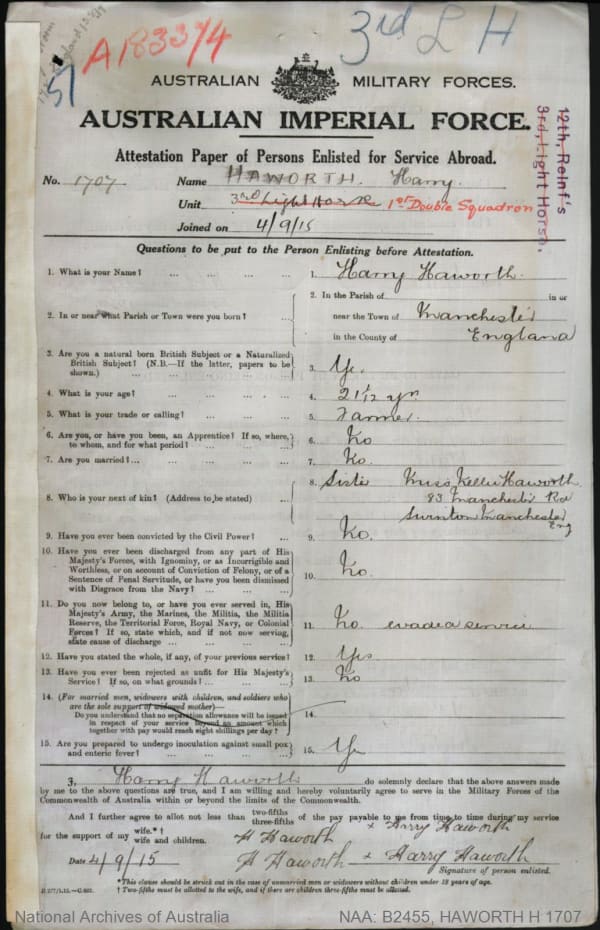 A18334
3rd L H
57
AUSTRALIAN MILITARY FORCES.
AUSTRALIAN IMPERIAL FORCE.
12th, Reinf's
3rd, Light Horse.
Attestation Paper of Persons Enlisted for Service Abroad.
No. 1707 Name HAWORTH. Harry.
Unit 3rd Light Horse 1st Double Squadron
Joined on 4/9/15
Questions to be put to the Person Enlisting before Attestation.
1. What is your Name? ... ... ... ... 1. Harry Haworth.
2. In or near what Parish or Town were you born? ... 2. In the Parish of in or
near the Town of Manchester
in the County of England
3. Are you a natural born British Subject or a Naturalized
British Subject? (N.B.—If the latter, papers to be
shown.) ... ... ... ... 3. Yes
4. What is your age? ... ... ... ... 4. 21 1/12 yrs
5. What is your trade or calling? ... ... ... 5. Farmer.
6. Are you, or have you been, an Apprentice? If so, where,
to whom, and for what period? ... ... ... 6. No
7. Are you married? ... ... ... ... ... 7. No.
8. Who is your next of kin? (Address to be stated) ... 8. Sister Miss Nellie Haworth
83 Manchester Rd
Swinton Manchester
Eng
9. Have you ever been convicted by the Civil Power? ... 9. No.
10. Have you ever been discharged from any part of His
Majesty's Forces, with Ignominy, or as Incorrigible and
Worthless, or on account of Conviction of Felony, or of a
Sentence of Penal Servitude, or have you been dismissed
with Disgrace from the Navy? ... ... ... 10. No.
11. Do you now belong to, or have you ever served in, His
Majesty's Army, the Marines, the Militia, the Militia
Reserve, the Territorial Force, Royal Navy, or Colonial
Forces? If so, state which, and if not now serving,
state cause of discharge ... ... ... 11. No. evaded service
12. Have you stated the whole, if any, of your previous service? 12. Yes
13. Have you ever been rejected as unfit for His Majesty's
Service? If so, on what grounds? ... ... ... 13. No
14. (For married men, widowers with children, and soldiers who
are the sole support of widowed mother)—
Do you understand that no separation allowance will be issued
in respect of your service beyond an amount which
together with pay would reach eight shillings per day? 14.
15. Are you prepared to undergo inoculation against small pox
and enteric fever? ... ... ... ... 15. Yes
I, Harry Haworth do solemnly declare that the above answers made
by me to the above questions are true, and I am willing and hereby voluntarily agree to serve in the Military Forces of the
Commonwealth of Australia within or beyond the limits of the Commonwealth.
And I further agree to allot not less than two-fifths three-fifths of the pay payable to me from time to time during my service
for the support of my wife.*† wife and children. H Haworth x Harry Haworth
Date 4/9/15 H Haworth x Harry Haworth
Signature of person enlisted.
*This clause should be struck out in the case of unmarried men or widowers without children under 18 years of age.
† Two-fifths must be allotted to the wife, and if there are children three-fifths must be allotted.
National Archives of Australia NAA: B2455, HAWORTH H 1707